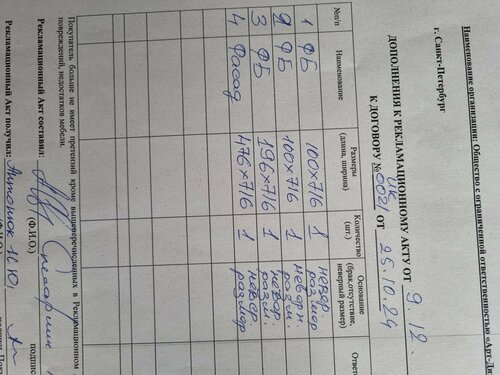 Наименование организации: Общество с ограниченной ответственностью «Арт-Ди
г. Санкт-Петербург
ДОПОЛНЕНИЯ К РЕКЛАМАЦИОННОМУ АКТУ ОТ 9.12.
К ДОГОВОРУ № ИК 0021 ОТ 25.10.24
№п/п Наименование Размеры (длина, ширина) Количество (шт.) Основание (брак,отсутствие, неверный размер) Ответс
1 ФБ 100х716 1 невер. размер
2 ФБ 100х716 1 неверн. разм.
3 ФБ 196х716 1 невер. разм.
4 Фасад 476х716 1 невер. размер
Покупатель больше не имеет претензий кроме вышеперечисленных в Рекламационном
повреждений, недостатков мебели.
Рекламационный Акт составил:
(Ф.И.О.) подпис
Рекламационный Акт получил: Антонюк И.Ю.
(Ф.И.О.)